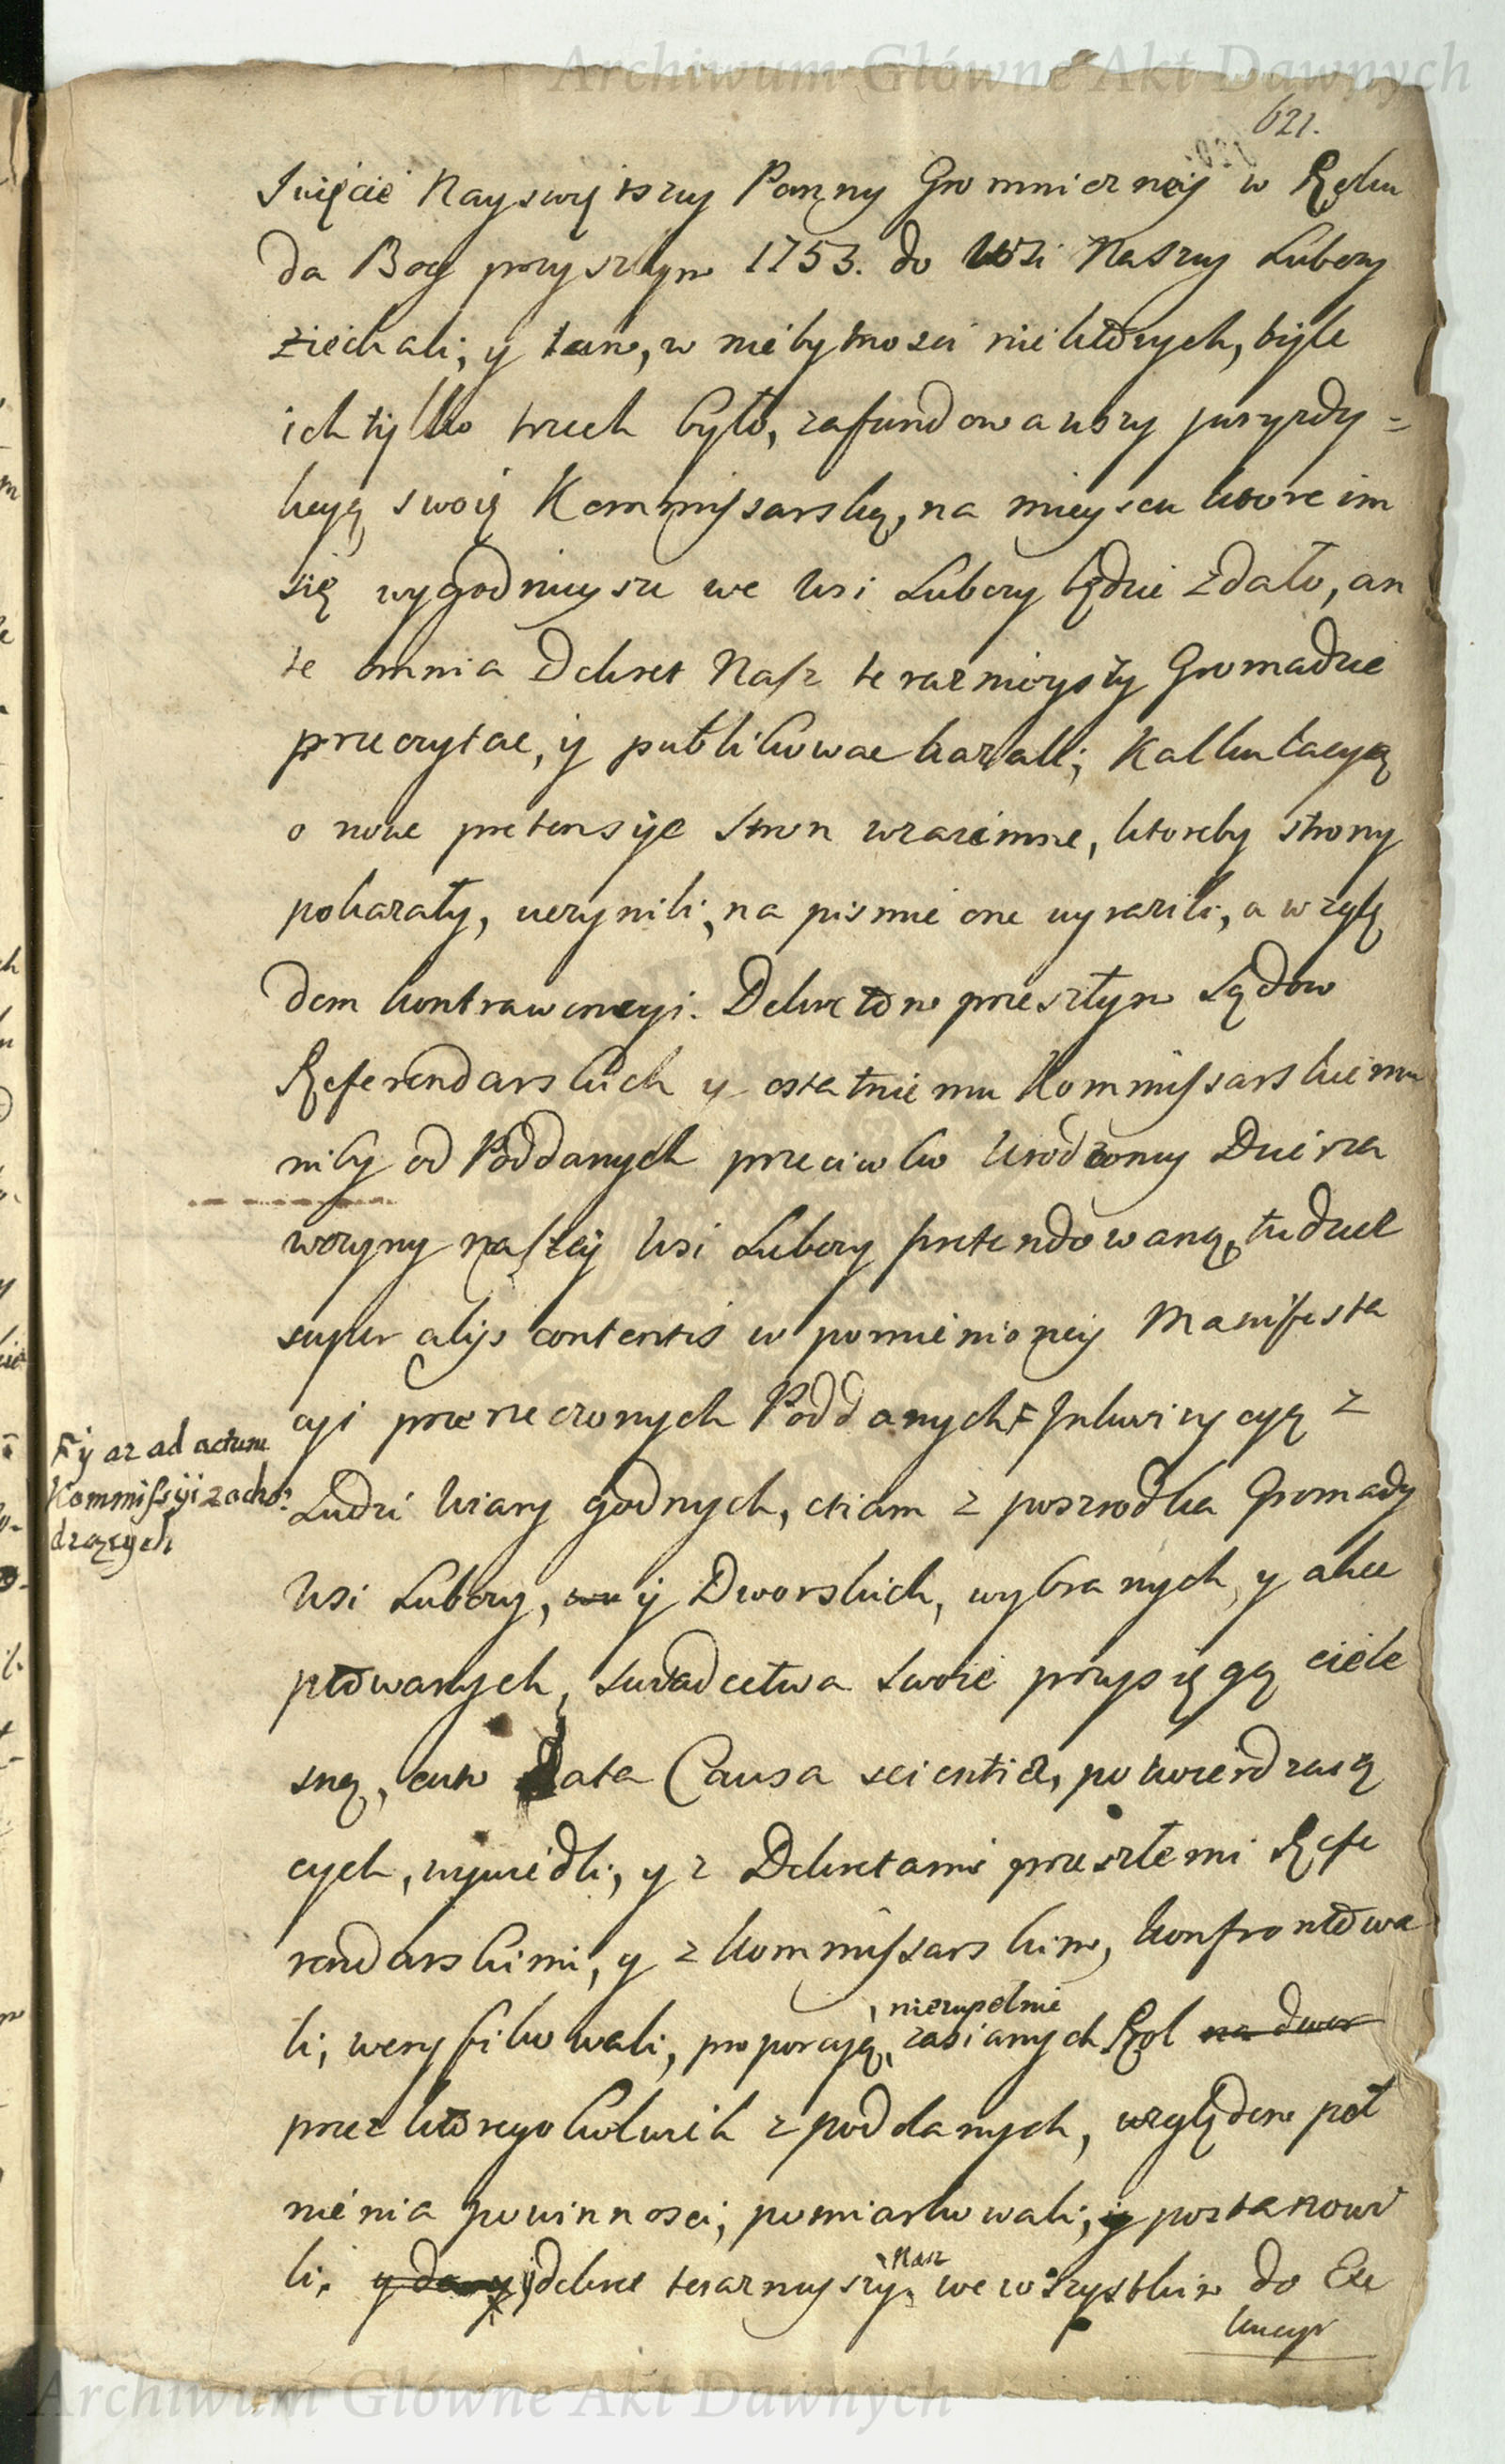 Archiwum Główne Akt Dawnych
621.
Święcie Nayswiętszey Panny Gromniczney w Roku
da Bog przyszłym 1753. do Wsi Naszey Luborzy
ziechali; y tam, w niebytnosci niektórych, byle
ich tylko trzech było, zafundowawszy juryzdy=
kcyą swoię Kommissarską, na mieyscu ktore im
się wygodnieysze we Wsi Luborzy będzie zdało, an
te omnia Dekret Nasz teraznieyszy Gromadzie
przeczytac, y publikowac kazali; Kalkulacyą
o nowe pretensye stron wzaiemne, ktoreby strony
pokazały, uczynili, na pismie one wyrazili, a wzglę
dem kontrawencyi Dekretom przeszłym Sądow
Referendarskich y ostatniemu Kommissarskiemu
niby od Poddanych przeciwko Urodzoney Dzierza
wczyny naszey Wsi Luborzy pretendowaną, tudziez
super alijs contentis w pomienioney Manifesta
cyi przerzeczonych Poddanych F Inkwizycyą z
F y az ad actum
Kommissyi zacho:
dzących
Ludzi Wiary godnych, etiam z poszrodka Gromady
Wsi Luborzy, y Dworskich, wybranych y akce
ptowanych, swiadectwa swoie przysięgą ciele
sną, cum Data Causa scientiæ, potwierdzaią
cych, wywiedli, y z Dekretami przeszłemi Refe
rendarskimi, y z kommissarskim, konfrontowa
li, weryfikowali, proporcyą, niezupełnie zasianych Rol na dwor
przez ktoregokolwiek z poddanych, względem peł
nienia powinnosci, pomiarkowali, y postanowi
li. y dekret terazneyszy Nasz we wszystkim do Exe
kucyi
Archiwum Główne Akt Dawnych